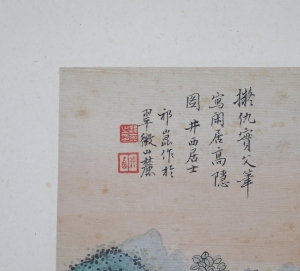 擬仇實父筆
寫閑居高隱
圖井西居士
祁崑作於
翠微山麓